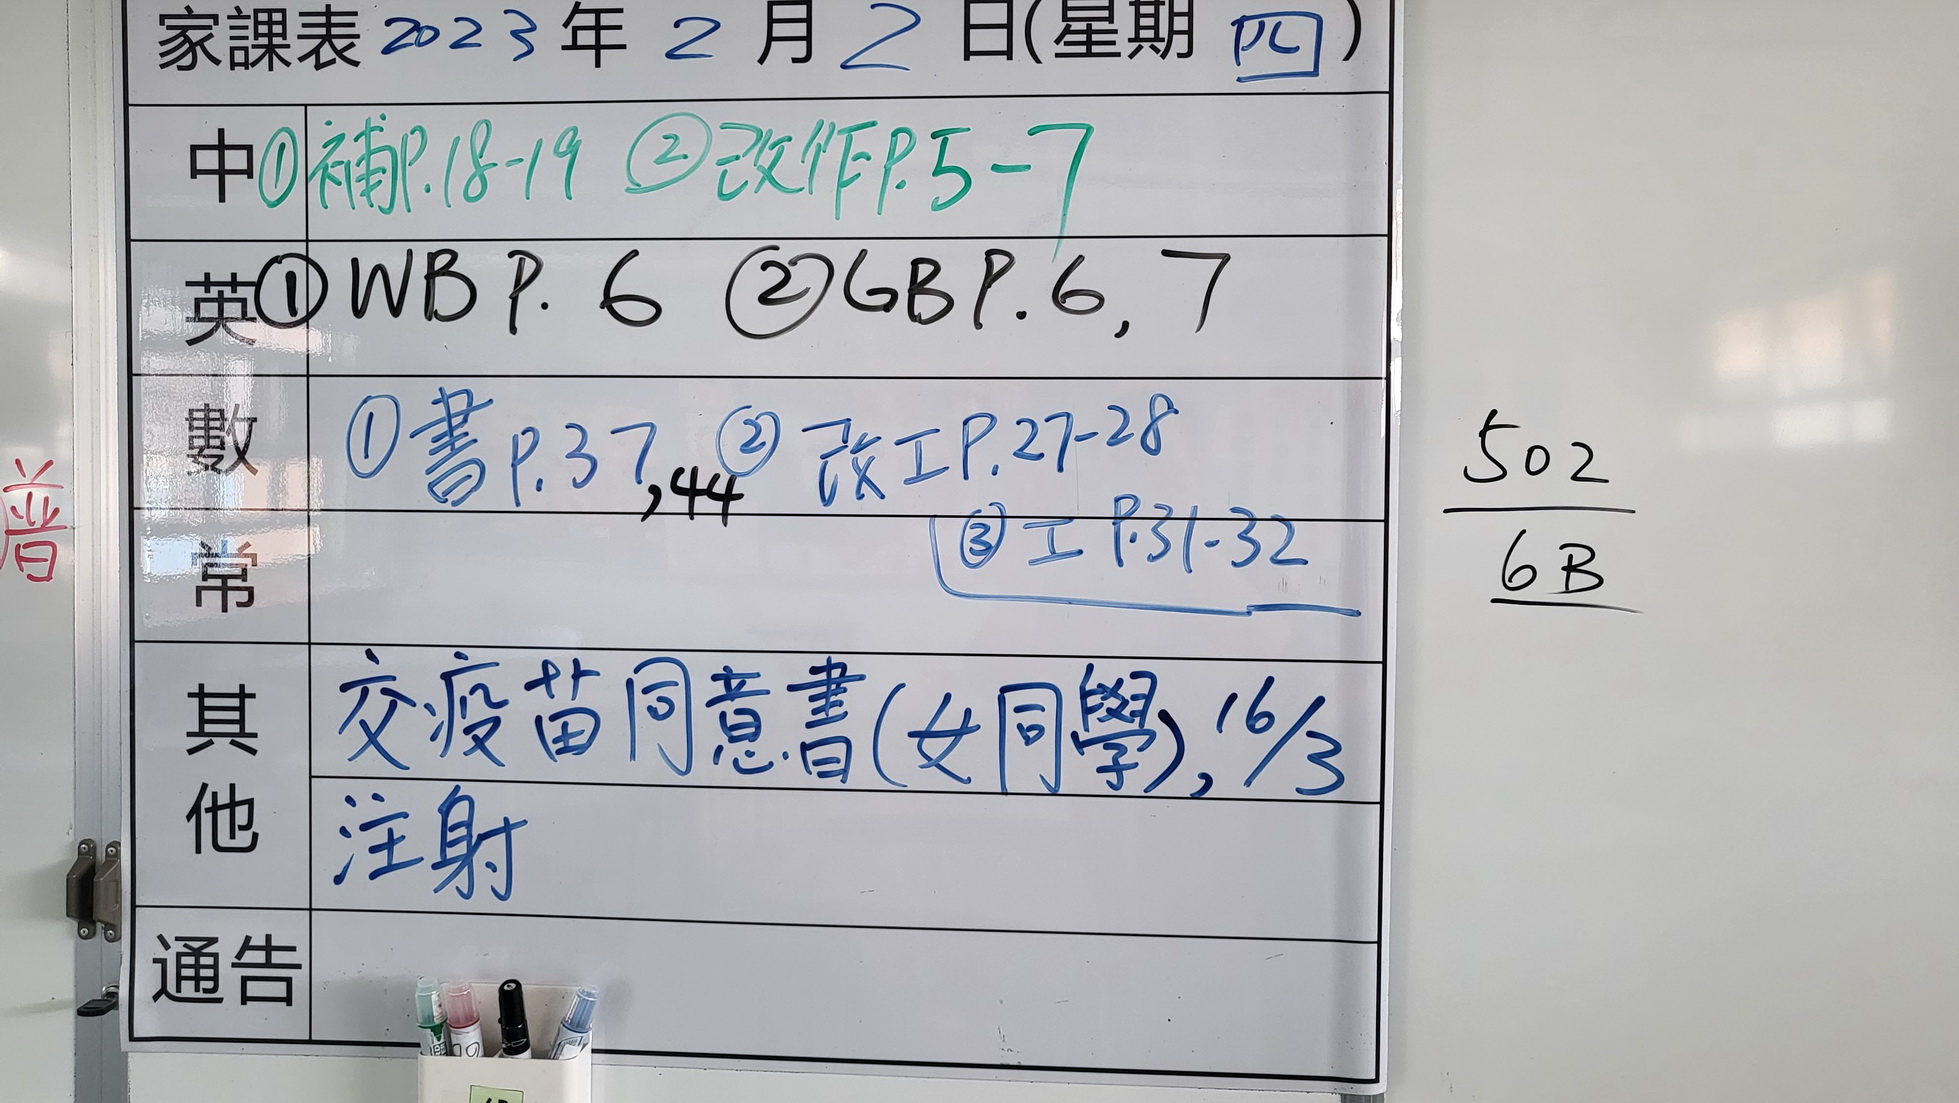 家課表 2023 年 2 月 2 日(星期 四)
中 ①補P.18-19 ②改作P.5-7
英 ①WB P. 6 ②GB P. 6, 7
數 ①書P.37,44 ②改工P.27-28
③工 P.31-32
常
其他 交疫苗同意書(女同學), 16/3
注射
通告
普
502
6B